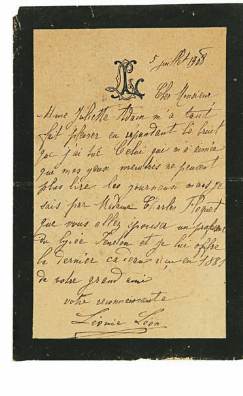 5 juillet 1908
Cher Monsieur,
Mme Juliette Adam m'a tant
fait pleurer en répandant le bruit
que j'ai tué Celui qui m'a
que mes yeux ne peuvent
plus lire les journaux mais je
sais par Madame Charles Floquet
que vous allez épouser un professeur
du lycée Fénelon et je lui offre
le dernier en 1881
de votre grand ami
votre reconnaissante
Léonie Léon